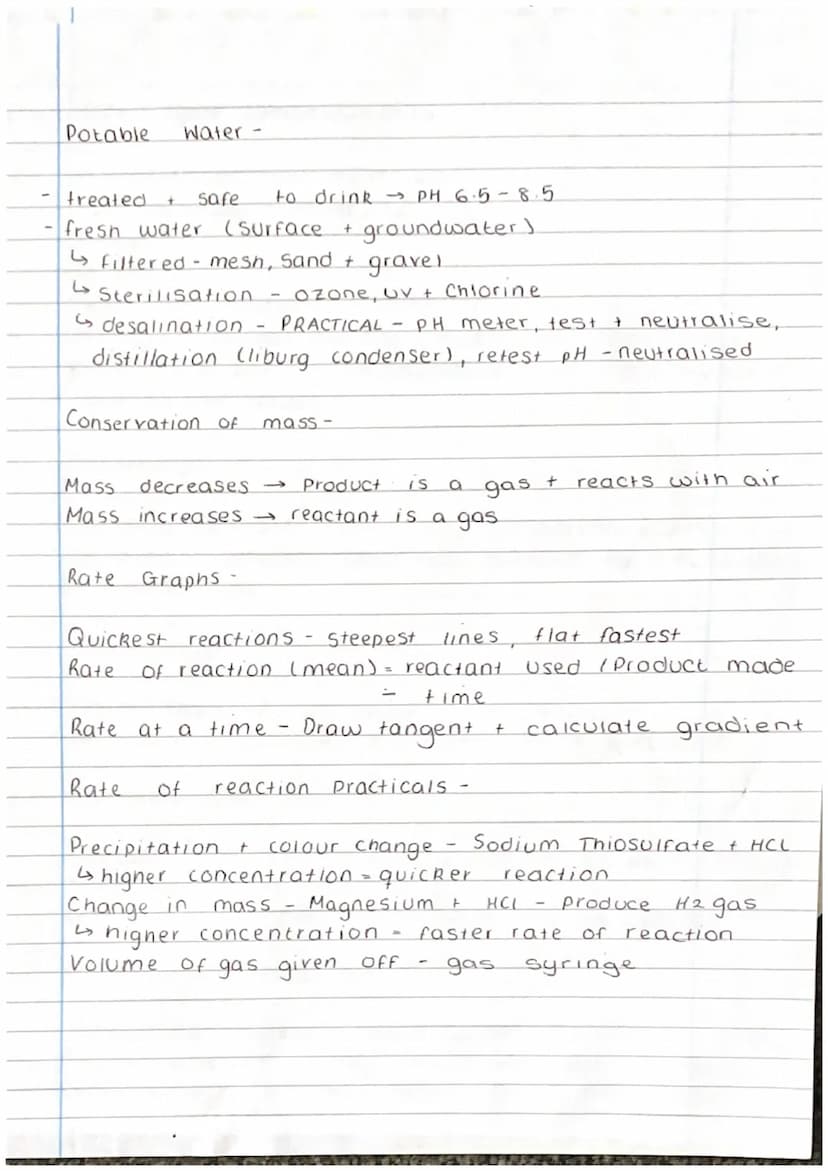 Potable Water -
- treated + safe to drink → PH 6.5 - 8.5
- fresh water (surface + groundwater)
↳ filtered - mesh, sand + gravel
↳ Sterilisation - ozone, UV + Chlorine
↳ desalination - PRACTICAL - PH meter, test + neutralise,
distillation (liburg condenser), retest pH - neutralised
Conservation of mass -
Mass decreases → Product is a gas + reacts with air
Mass increases → reactant is a gas
Rate Graphs -
Quickest reactions - steepest lines, flat fastest
Rate of reaction (mean) = reactant used / Product made
÷ time
Rate at a time - Draw tangent + calculate gradient
Rate of reaction practicals -
Precipitation + colour change - Sodium Thiosulfate + HCl
↳ higher concentration = quicker reaction
Change in mass - Magnesium + HCl - Produce H2 gas
↳ higher concentration = faster rate of reaction
Volume of gas given off - gas syringe